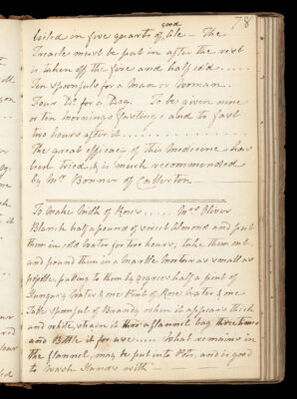 good 78
boiled in five quarts of Ale — The
Treacle must be put in after the rest
is taken off the fire and half cold.....
Ten spoonfuls for a Man or Woman.
Four Do. for a Dog. To be given nine
or ten mornings fasting & and to fast
two hours after it..........
The great efficacy of this Medicine has
been tried, & is much recommended
by Mr. Bonner of Callerton.
To Make Milk of Roses..... Mrs. Oliver
Blanch half a pound of sweet Almond and put
them in cold Water for two hours, take them out
and pound them in a Marble Mortar as small as
possible, putting to them by degrees half a pint of
Hungary Water & one Pint of Rose Water & one
Table spoonful of Brandy, when it appears thick
and white, strain it thro a flannel bag three times
and Bottle it for use..... What remains in
the flannel, may be put into Pots, and is good
to wash Hands with —